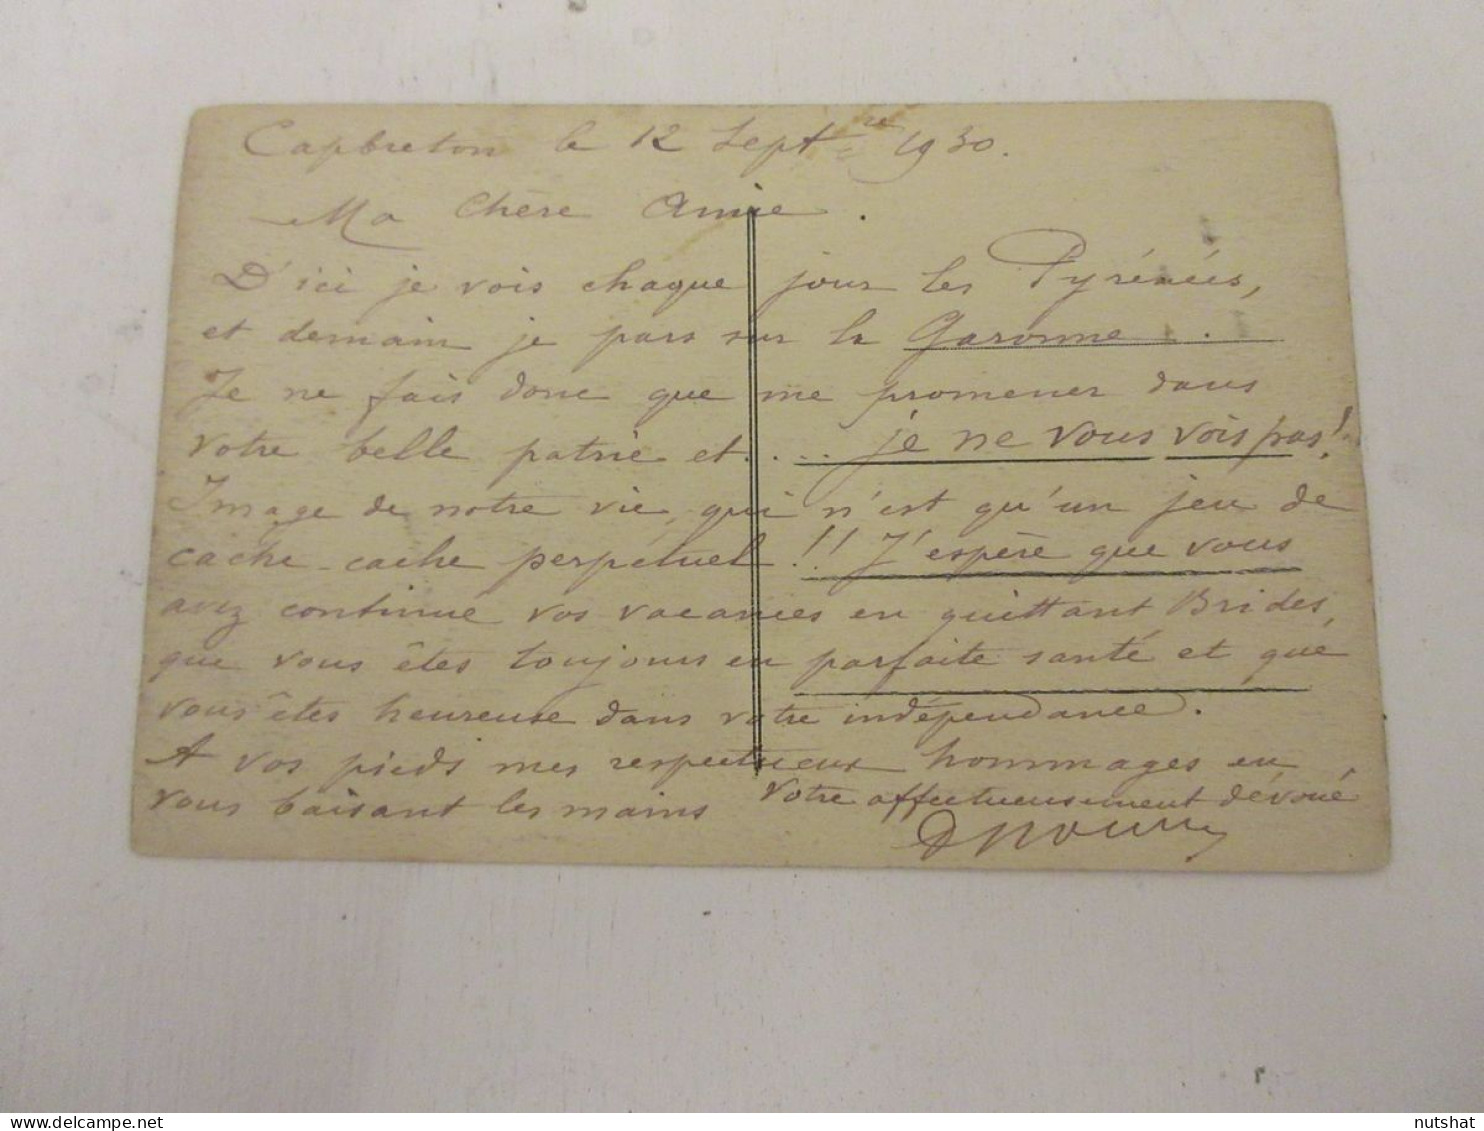 Capbreton le 12 Septre 1930.
Ma Chère Amie.
D'ici je vois chaque jour les Pyrénées,
et demain je pars sur la Garonne...
Je ne fais donc que me promener dans
votre belle patrie et.... je ne vous vois pas!
Image de notre vie, qui n'est qu'un jeu de
cache-cache perpétuel!!! J'espère que vous
avez continué vos vacances en quittant Brides,
que vous êtes toujours en parfaite santé et que
vous êtes heureuse dans votre indépendance.
A vos pieds mes respectueux hommages en
vous baisant les mains votre affectueusement dévoué
nutshat